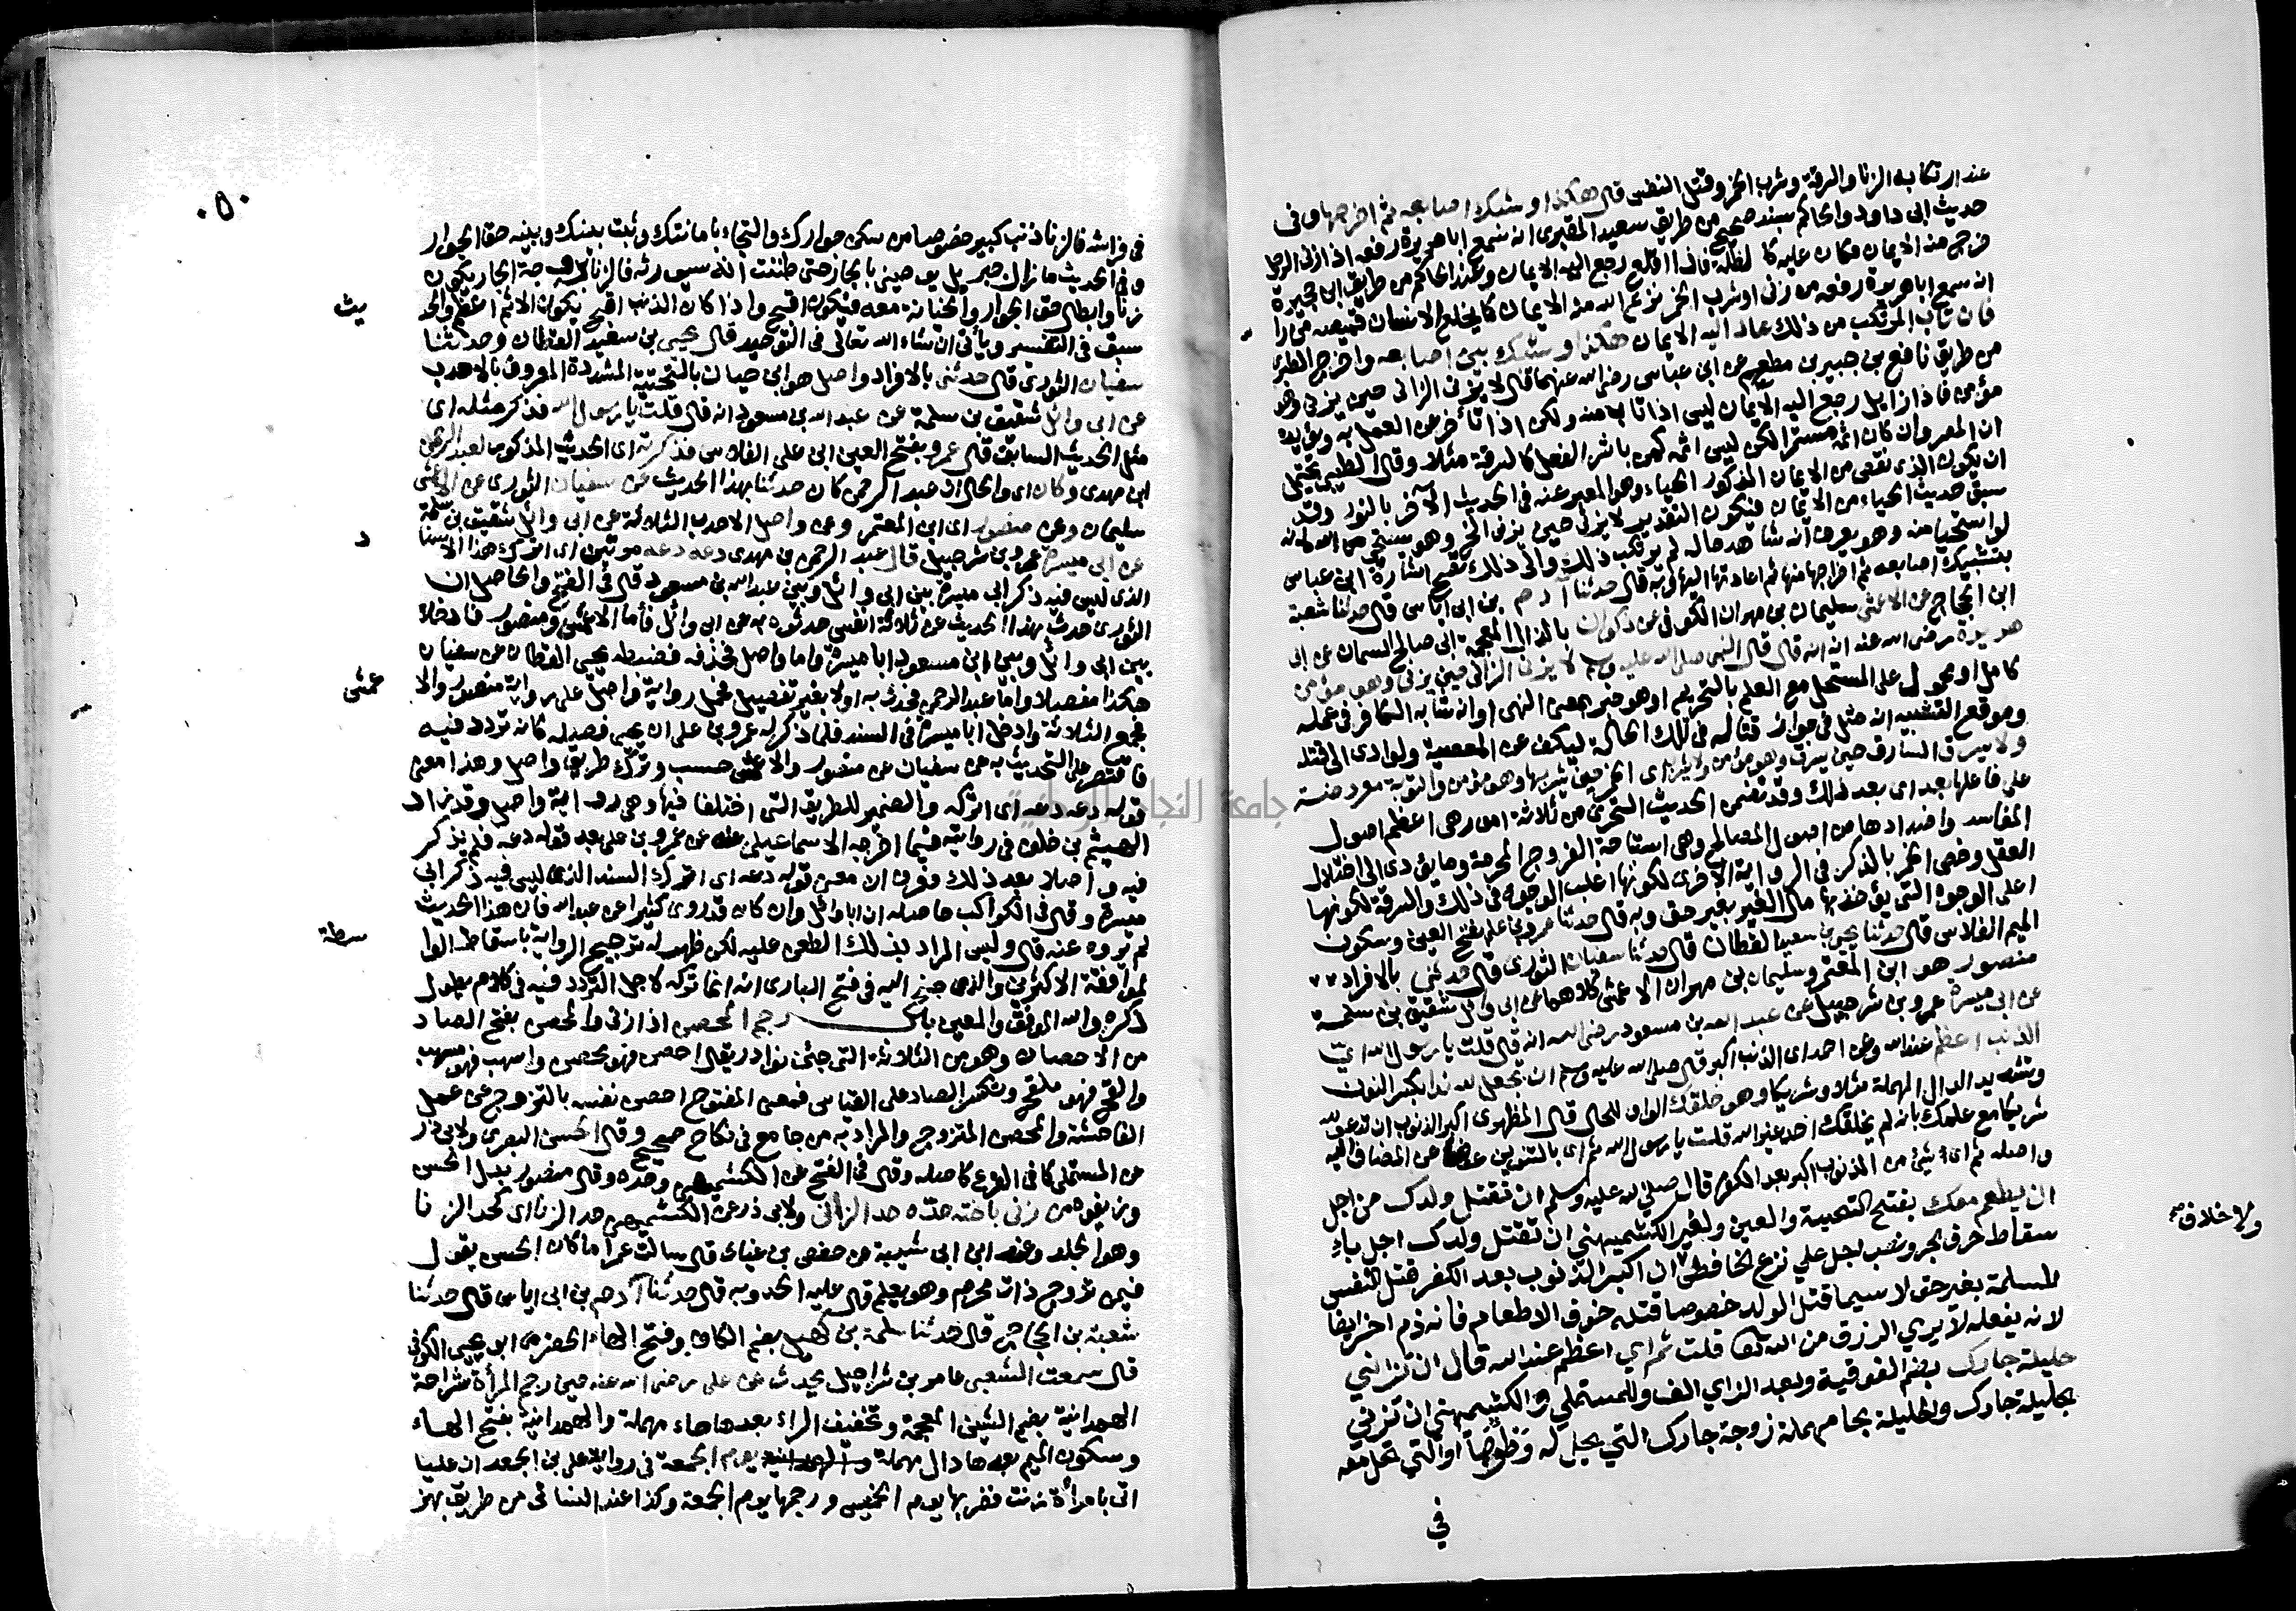 عند ارتكابه الزنا والسرقة وشرب الخمر وقتل النفس قال هكذا وشبك اصابعه ثم اخرجها وفى
حديث ابى داود والحاكم بسند صحيح من طريق سعيد المقبرى انه سمع ابا هريرة رفعه اذا زنى الرجل
خرج منه الايمان فكان عليه كالظلة فاذا اقلع رجع اليه الايمان وعند الحاكم من طريق ابن حجيرة
انه سمع ابا هريرة رفعه من زنى او شرب الخمر نزع الله منه الايمان كما يخلع الانسان قميصه من راسه
فان تاب المرتكب من ذلك عاد اليه الايمان هكذا وشبك بين اصابعه واخرج الطبرى
من طريق نافع بن جبير بن مطعم عن ابن عباس رضى الله عنهما قال لا يزنى الزانى حين يزنى وهو
مؤمن فاذا زايل رجع اليه الايمان ليس اذا تاب منه ولكن اذا تأخر عن العمل به ويؤيده
ان المصر وان كان اثمه مستمرا لكن ليس اثمه كمن باشر الفعل كالسرقة مثلا وقال الطيبى يحتمل
ان يكون الذى نقص من الايمان المذكور الحياء وهو المعبر عنه فى الحديث الآخر بالنور وقد
سبق حديث الحياء من الايمان فيكون التقدير لا يزنى حين يزنى الخ وهو يستحى من الله لانه
لو استحيا منه وهو يعرف انه شاهد حاله لم يرتكب ذلك والى ذلك تصح اشارة ابن عباس
بتشبيك اصابعه ثم اخراجها منها ثم اعادتها اليها وبه قال حدثنا آدم بن ابى اياس قال حدثنا شعبة
ابن الحجاج عن الاعمش سليمان بن مهران الكوفى عن ذكوان بالذال المعجمة ابى صالح السمان عن ابى
هريرة رضى الله عنه انه قال قال النبى صلى الله عليه وسلم لا يزنى الزانى حين يزنى وهو مؤمن
كامل او محمول على المستحل مع العلم بالتحريم او هو خبر بمعنى النهى او انه شابه الكافر فى عمله
وموقع التشبيه انه مثله فى جواز قتاله فى تلك الحالة ليكف عن المعصية ولو ادى الى قتله
ولا يسرق السارق حين يسرق وهو مؤمن ولا يشرب اى الخمر حين يشربها وهو مؤمن والتوبة معروضة
على فاعلها بعد اى بعد ذلك وقد تضمن الحديث التحرى من ثلاثة امور هى اعظم اصول
المفاسد واضدادها من اصول المصالح وهى استباحة الفروج المحرمة وما يؤدى الى اختلال
العقل وخص الخمر بالذكر فى الرواية الاخرى لكونها اغلب الوجوه فى ذلك والسرقة لكونها
اعلى الوجوه التى يؤخذ بها مال الغير بغير حق وبه قال حدثنا عمرو بن على بفتح العين وسكون
الميم الفلاس قال حدثنا يحيى بن سعيد القطان قال حدثنا سفيان الثورى قال حدثنى بالافراد
منصور هو ابن المعتمر وسليمان بن مهران الاعمش كلاهما عن ابى وائل شقيق بن سلمة
عن ابى ميسرة عمرو بن شرحبيل عن عبد الله بن مسعود رضى الله عنه انه قال قلت يا رسول الله اى
الذنب اعظم عند الله وعن احمد اى الذنب اكبر قال صلى الله عليه وسلم ان تجعل لله ندا بكسر النون
وتشديد الدال المهملة مثلا وشريكا وهو خلقك الواو للحال قال المظهرى اكبر الذنوب ان تدعو لله
شريكا مع علمك بانه لم يخلقك احد غير الله قلت يا رسول الله ثم اى بالتنوين عوضا عن المضاف اليه
واصله ثم اى شئ من الذنوب اكبر بعد الكفر قال صلى الله عليه وسلم ان تقتل ولدك من اجل
ان يطعم معك بفتح التحتية والعين ولغير الكشميهنى ان تقتل ولدك اجل باء
سقاط حرف الجر ونصب اجل على نزع الخافض ولا خلاف ان اكبر الذنوب بعد الكفر قتل النفس
المسلمة بغير حق لا سيما قتل الولد خصوصا قتله خوف الاطعام فانه ذم اخر ايضا
لانه يفعله لا يرى الرزق من الله تعالى قلت ثم اى اعظم عند الله قال ان تزانى
حليلة جارك بضم الفوقية وبعد الزاى الف وللمستملى والكشميهنى ان تزنى
بحليلة جارك والحليلة بحاء مهملة زوجة جارك التى يحل له وطؤها او التى تحل معه
فى
٥٠
فى فراشه فالزنا ذنب كبير خصوصا من سكن جوارك والتجاء بامانتك وثبت بينك وبينه حق الجوار
وفى الحديث ما زال جبريل يوصينى بالجار حتى ظننت انه سيورثه فالزنا بزوجة الجار يكون
زنا وابطال حق الجوار والخيانة معه فيكون اقبح واذا كان الذنب اقبح يكون الاثم اعظم والحد
يث
سبق فى التفسير ويأتى ان شاء الله تعالى فى التوحيد قال يحيى بن سعيد القطان وحدثنا
سفيان الثورى قال حدثنى بالافراد واصل هو ابن حيان بالتحتية المشددة المعروف بالاحدب
عن ابى وائل شقيق بن سلمة عن عبد الله بن مسعود انه قال قلت يا رسول الله فذكر مثله اى
مثل الحديث السابق قال عمرو بفتح العين ابن على الفلاس فذكرته اى الحديث المذكور لعبد الرحمن
ابن مهدى وكان اى والحال ان عبد الرحمن كان حدثنا بهذا الحديث عن سفيان الثورى عن الاعمش
سليمان وعن منصور اى ابن المعتمر وعن واصل الاحدب الثلاثة عن ابى وائل شقيق بن سلمة
عن ابى ميسرة عمرو بن شرحبيل قال عبد الرحمن بن مهدى دعه دعه مرتين اى اترك هذا الاسنا
د
الذى ليس فيه ذكر ابى ميسرة بين ابى وائل وبين عبد الله بن مسعود قال فى الفتح والحاصل ان
الثورى حدث بهذا الحديث عن ثلاثة انفس حدثوه به عن ابى وائل فأما الاعمش ومنصور فادخلا
بين ابى وائل وبين ابن مسعود ابا ميسرة واما واصل فحذفه فضبطه يحيى القطان عن سفيان
هكذا مفصلا واما عبد الرحمن فحدث به اولا بغير تفصيل فحمل رواية واصل على رواية منصور والا
عمش
فجمع الثلاثة وادخل ابا ميسرة فى السند فلما ذكر له عمرو بن على ان يحيى فصله كانه تردد فيه
فاقتصر على التحديث به عن سفيان عن منصور والاعمش حسب وترك طريق واصل وهذا معنى
قوله دعه دعه اى اتركه والضمير للطريق التى اختلفا فيها وهى رواية واصل وقد زاد
الهيثم بن خلف فى روايته فيما اخرجه الاسماعيلى عنه عن عمرو بن على بعد قوله دعه فلم يذكر
فيه واصلا بعد ذلك فعرف ان معنى قوله دعه اى اترك السند الذى ليس فيه ذكر ابى
ميسرة وقال فى الكواكب حاصله ان ابا وائل وان كان قد روى كثيرا عن عبد الله فان هذا الحديث
لم يروه عنه قال وليس المراد بذلك الطعن عليه لكن ظهر له ترجيح الرواية باسقاط الوا
سطة
لموافقة الاكثرين والذى جنح اليه فى فتح البارى انه انما تركه لاجل التردد فيه فى كلام يطول
ذكره والله الموفق والمعين باب رجم المحصن اذا زنى والمحصن بفتح الصاد
من الاحصان وهو من الثلاثة التى جئن نوادر يقال احصن فهو محصن واسهب فهو مسهب
والقح فهو ملقح وتكسر الصاد على القياس فمعنى المفتوح احصن نفسه بالتزوج عن عمل
الفاحشة والمحصن المتزوج والمراد به من جامع فى نكاح صحيح وقال الحسن البصرى ولابى ذر
عن المستملى كما فى الفرع كاصله وقال فى الفتح عن الكشميهنى وحده وقال منصور بدل الحسن
وزيفوه من زنى باخته حده حد الزانى ولابى ذر عن الكشميهنى حد الزنا اى كحد الزنا
وهو الجلد وعند ابن ابى شيبة عن حفص بن غياث قال سالت عمرا ما كان الحسن يقول
فيمن تزوج ذات محرم وهو يعلم قال عليه الحد وبه قال حدثنا آدم بن ابى اياس قال حدثنا
شعبة بن الحجاج قال حدثنا سلمة بن كهيل بضم الكاف وفتح الهاء الحضرمى ابو يحيى الكوفى
قال سمعت الشعبى عامر بن شراحيل يحدث عن على رضى الله عنه حين رجم المرأة شراحة
الهمدانية بضم الشين المعجمة وتخفيف الراء بعدها حاء مهملة والهمدانية بفتح الهاء
وسكون الميم بعدها دال مهملة يوم الجمعة فى رواية على بن الجعد ان عليا
اتى بامرأة زنت فضربها يوم الخميس ورجمها يوم الجمعة وكذا عند النسائى من طريق بهز
جامعة النجاح الوطنية